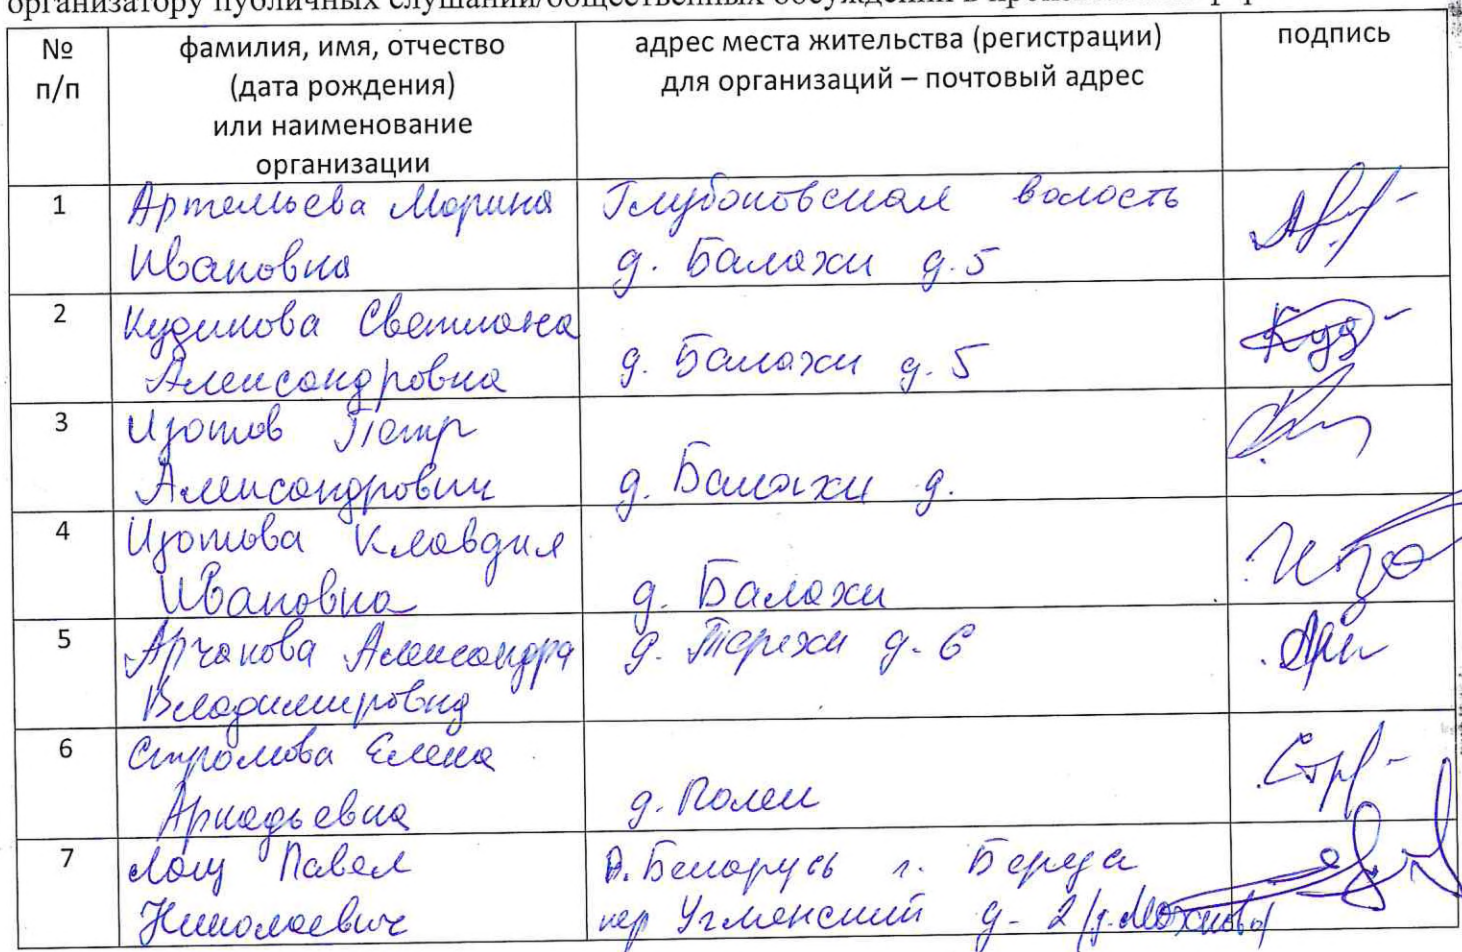 организатору публичных слушаний/общественных обсуждений в
№ п/п
фамилия, имя, отчество
(дата рождения)
или наименование
организации
адрес места жительства (регистрации)
для организаций – почтовый адрес
подпись
1
Артемьева Марина
Ивановна
Глубоковская волость
д. Балахи д.5
2
Кудинова Светлана
Александровна
д. Балахи д.5
Куд
3
Изотов Петр
Александрович
д. Балахи д.
4
Изотова Клавдия
Ивановна
д. Балахи
Изо
5
Арчакова Александра
Владимировна
д. Терехи д.6
6
Стромова Елена
Аркадьевна
д. Полеи
Стр
7
Лощ Павел
Николаевич
Р. Беларусь г. Береза
пер д. 2